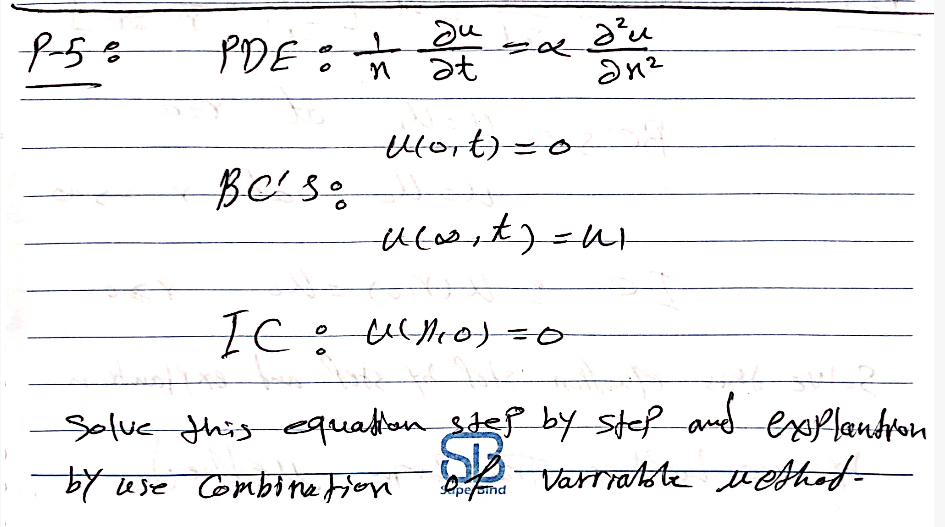 P-5: PDE: 1/x ∂u/∂t = α ∂²u/∂x²
u(0,t)=0
BC's:
u(∞,t)=u1
IC: u(x,0)=0
Solve this equation step by step and explantion
by use Combination of varriable method.
SB
SuperBind